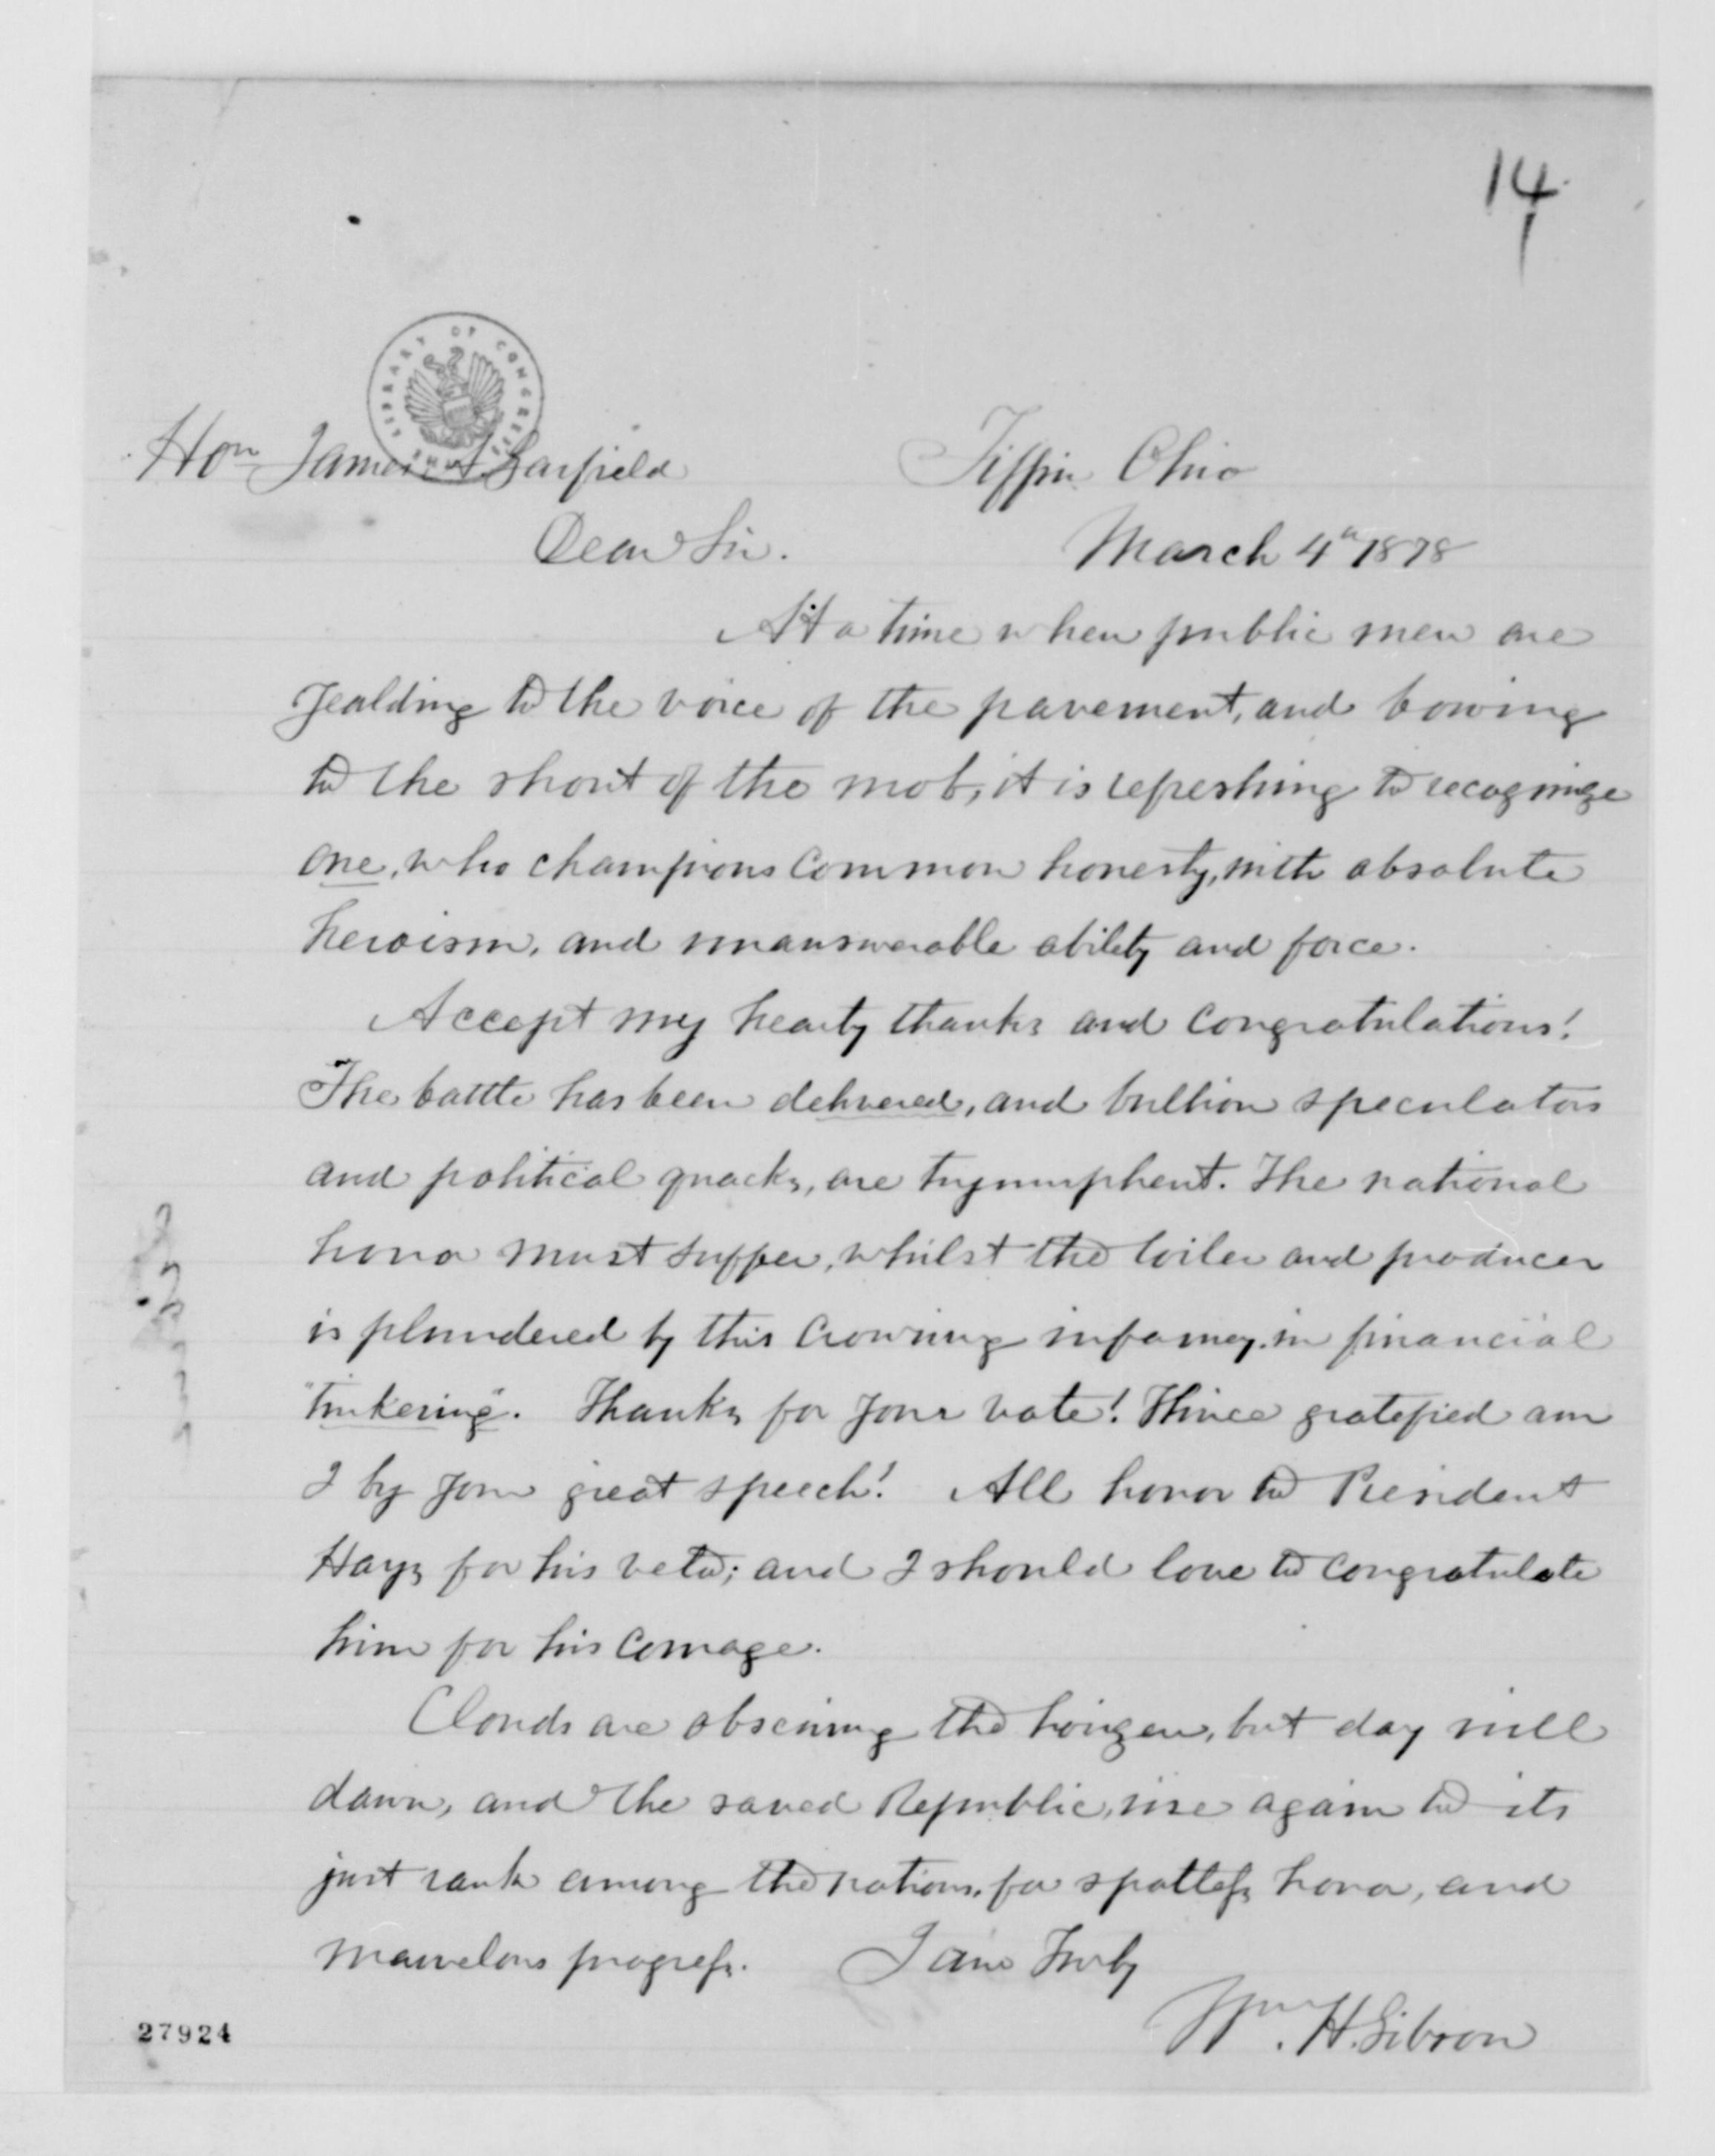 14
LIBRARY OF CONGRESS
Hon James A Garfield
Tiffin Ohio
Dear Sir.
March 4th 1878
At a time when public men are
yealding to the voice of the pavement, and bowing
to the shout of the mob, it is refreshing to recognize
one, who champions common honesty, with absolute
heroism, and unanswerable ability and force.
Accept my hearty thanks and congratulations!
The battle has been delivered, and bullion speculators
and political quacks, are tryumphent. The national
honor must suffer, whilst the toiler and producer
is plundered by this crowning infamy in financial
"tinkering". Thanks for your vote! Thrice gratefied am
I by your great speech! All honor to President
Hays for his veto; and I should love to congratulate
him for his courage.
Clouds are obscuring the horizen, but day will
dawn, and the saved Republic, rise again to its
just rank among the nations, for spotless honor, and
marvelous progress. I am Truly
Wm. H. Gibson
27924